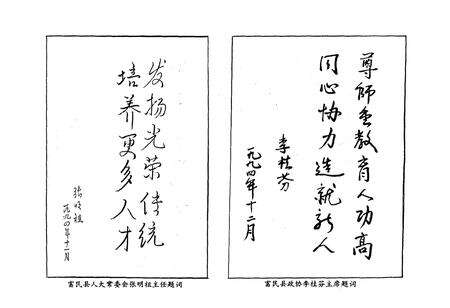 发扬光荣传统
培养更多人才
张明祖
一九九四年十一月
富民县人大常委会张明祖主任题词
尊师重教育人功高
同心协力造就新人
李桂芬
一九九四年十二月
富民县政协李桂芬主席题词